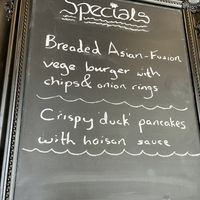 Specials
Breaded Asian-Fusion
vege burger with
chips & onion rings
Crispy duck pancakes
with hoisan sauce